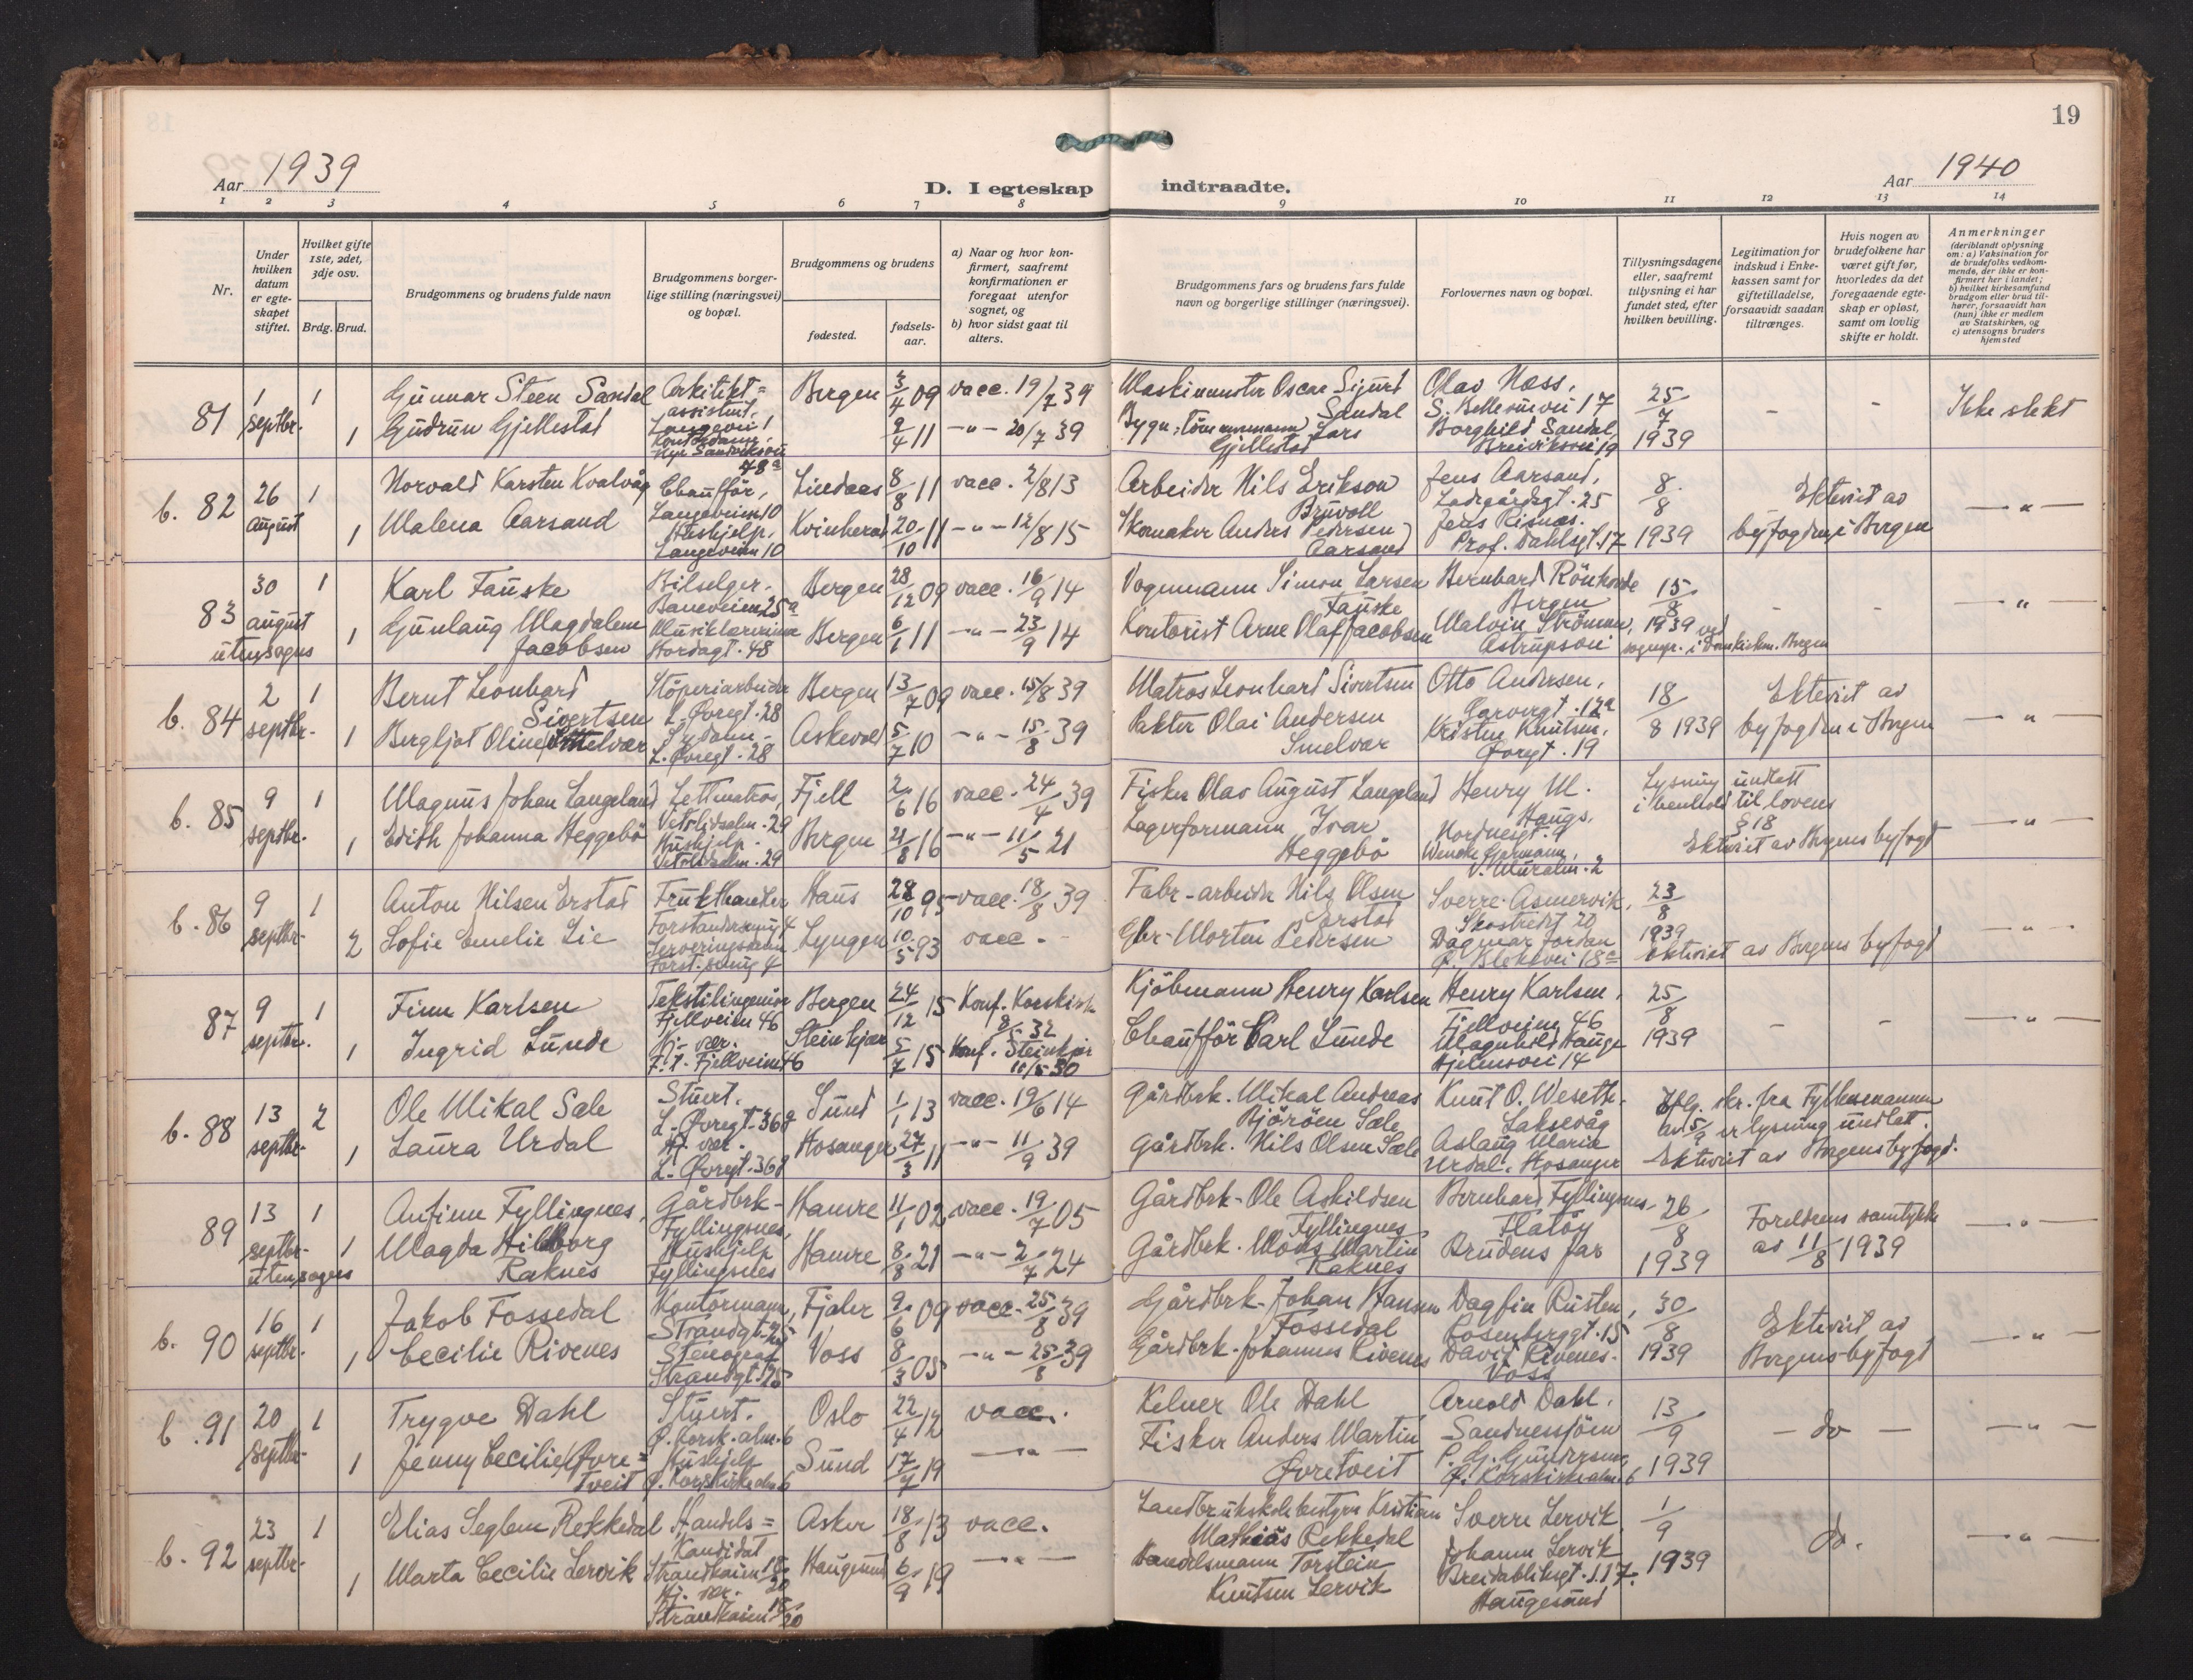 19
Aar 1939
D. I egteskap indtraadte.
Aar 1940
1 2 3 4 5 6 7 8 9 10 11 12 13 14
Nr.
Under hvilken datum er egteskapet stiftet.
Hvilket gifte 1ste, 2det, 3dje osv.
Brdg. Brud.
Brudgommens og brudens fulde navn
Brudgommens borgerlige stilling (næringsvei) og bopæl.
Brudgommens og brudens
fødested.
fødselsaar.
a) Naar og hvor konfirmert, saafremt konfirmationen er foregaat utenfor sognet, og
b) hvor sidst gaat til alters.
Brudgommens fars og brudens fars fulde navn og borgerlige stillinger (næringsvei).
Forlovernes navn og bopæl.
Tillysningsdagene eller, saafremt tillysning ei har fundet sted, efter hvilken bevilling.
Legitimation for indskud i Enkekassen samt for giftetilladelse, forsaavidt saadan tiltrænges.
Hvis nogen av brudefolkene har været gift før, hvorledes da det foregaaende egteskap er opløst, samt om lovlig skifte er holdt.
Anmerkninger
(deriblandt oplysning om: a) Vaksination for de brudefolks vedkommende, der ikke er konfirmert her i landet; b) hvilket kirkesamfund brudgom eller brud tilhører, forsaavidt han (hun) ikke er medlem av Statskirken, og c) utensogns bruders hjemsted
81 1 septbr. 1 Gunnar Steen Sandal Arkitektassistent, Langevei 1 Bergen 3/4 09 vacc. 19/7 39 Maskinmester Oscar Sigurd Sandal Olav Næss, 25/7 1939 - - Ikke slekt
1 Gudrun Gjellestad 9/4 11 -"- 20/7 39 Bygn. tömmermann Lars Gjellestad Borghild Sandal,
b. 82 26 august 1 Norvald Karsten Kvalvåg Chaufför, Langeveien 10 Lindaas 8/8 11 vacc. 2/8 13 Arbeider Nils Erikson Bruvoll Jens Aarsand, Ladegårdsgt. 25 8/8 1939 Ektevist av byfogden i Bergen -"-
1 Malena Aarsand Hushjelp, Langeveien 10 Kvinherad 20/10 11 -"- 12/8 15 Skomaker Anders Pedersen Aarsand Jens Risnes. Prof. Dahlsgt. 17
83 30 august utensogns 1 Karl Fauske Bilselger. Baneveien 25a Bergen 28/12 09 vacc. 16/9 14 Vognmann Simon Larsen Fauske Bernhard Rönhovde Bergen 15/8 1939 ved sognepr. i Domkirken. Bergen - - -"-
1 Gunlaug Magdalene Jacobsen Musiklærerinne Hordagt. 48 Bergen 6/1 11 -"- 23/9 14 Kontorist Arne Olaf Jacobsen Malvin Strömmen, Astrupsvei
b. 84 2 septbr. 1 Bernt Leonhard Sivertsen Stöperiarbeider L. Øvregt. 28 Bergen 13/7 09 vacc. 15/8 39 Matros Leonhard Sivertsen Otto Andersen, 18/8 1939 Ektevist av byfogden i Bergen -"-
1 Bergljot Oline Smelvær L. Øvregt. 28 Askevold 5/7 10 -"- 15/8 39 Olai Andersen Smelvær Kristen Knutsen, Øvregt. 19
b. 85 9 septbr. 1 Magnus Johan Langeland Lettmatros, Vetrlidsalm. 29 Fjell 2/6 16 vacc. 24/4 39 Fisker Olav August Langeland Henry M. Haugs, Nordnesgt. 9 Lysning undlatt i henhold til lovens § 18
1 Edith Johanna Heggebö Hushjelp. Vetrlidsalm. 29 Bergen 21/8 16 -"- 11/5 21 Lagerformann Ivar Heggebö Wenche Gjermann, V. Muralm. 2 Ektevist av Bergens byfogd -"-
b. 86 9 septbr. 1 Anton Nilsen Erstad Frukthandler Haus 28/10 95 vacc. 18/8 39 Fabr-arbeider Nils Olsen Erstad Sverre Asmervik, Skostredet 20 23/8 1939
2 Sofie Emelie Lie Forst. smug 4 Lyngen 10/5 93 vacc. Gbr-Morten Pedersen Dagmar Jordan Ektevist av Bergens byfogd -"-
87 9 septbr. 1 Finn Karlsen Tekstilingeniör Fjellveien 46 Bergen 24/12 15 Konf. Korskirk. 8/5 32 Kjöbmann Henry Karlsen Henry Karlsen, Fjellveien 46 25/8 1939 - - -"-
1 Ingrid Lunde Hj. vær. F.t. Fjellveien 46 Steinkjær 5/7 15 Konf. Steinkjær Chaufför Carl Lunde Magnhild Hauge Hjelmsvei 14
b. 88 13 septbr. 2 Ole Mikal Sæle Stuert. L. Øvregt. 36 Sund 1/1 13 vacc. 19/6 14 Gårdbrk. Mikal Andreas Björöen Sæle Knut O. Weseth. Laksevåg Iflg. skr. fra Fylkesmannen av 5/9 er lysning undlatt.
1 Laura Urdal Hj. vær. L. Øvregt. 36 Hosanger 27/3 11 -"- 11/9 39 Gårdbrk. Nils Olsen Sæle Aslaug Marie Urdal, Hosanger Ektevist av Bergens byfogd.
89 13 septbr. utensogns 1 Anfinn Fyllingnes, Gårdbrk- Fyllingsnes, Hamre 11/1 02 vacc. 19/7 05 Gårdbrk- Ole Askildsen Fyllingnes, Bernhard Fyllingsnes Flatöy 26/8 1939 Foreldrenes samtykke av 11/8 1939 -"-
1 Magda Hilborg Raknes Hushjelp Fyllingsnes Hamre 8/8 21 -"- 2/7 24 Gårdbrk. Mons Martin Raknes Brudens far
b. 90 16 septbr. 1 Jakob Fossedal Kontormann, Strandgt. Fjaler 9/6 09 vacc. 25/8 39 Gårdbrk. Johan Hansen Fossedal Dagfin Rusten, Rosenberggt. 15 30/8 1939 Ektevist av Bergens byfogd -"-
1 Cecilie Rivenes Stenograf Strandgt. Voss 8/3 05 -"- 25/8 39 Gårdbrk. Johannes Rivenes David Rivenes. Voss
b. 91 20 septbr. 1 Trygve Dahl Stuert. Ø. Korsk. alm. 6 Oslo 22/4 12 vacc. Kelner Ole Dahl Arnold Dahl, Sandnessjöen 13/9 1939 - do - -"-
1 Jenny Cecilie Øvretveit Hushjelp Ø. Korskirkealm 6 Sund 17/7 19 -"- Fisker Anders Martin Øvretveit P. G. Gundersen, Ø. Korskirkealm. 6
b. 92 23 septbr. 1 Elias Seglem Rekkedal Handels= Kandidat Strandkaien 18/20 Asker 18/8 13 vacc. Landbrukskolebestyrer Kristian Mathias Rekkedal Sverre Lervik, 1/9 1939 do. -"-
1 Marta Cecilie Lervik Hj. vær. Strandkaien 18/20 Haugesund 6/9 19 -"- Handelsmann Torstein Knutsen Lervik Johann Lervik Breidabliksgt. 117. Haugesund